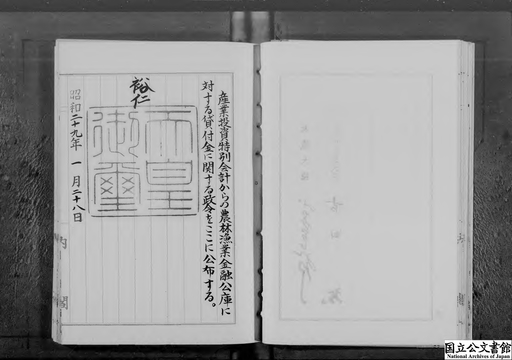 産業投資特別会計からの農林漁業金融公庫に
対する貸付金に関する政令をここに公布する。
裕仁
天皇
御璽
昭和二十九年一月二十八日
内閣
国立公文書館
National Archives of Japan